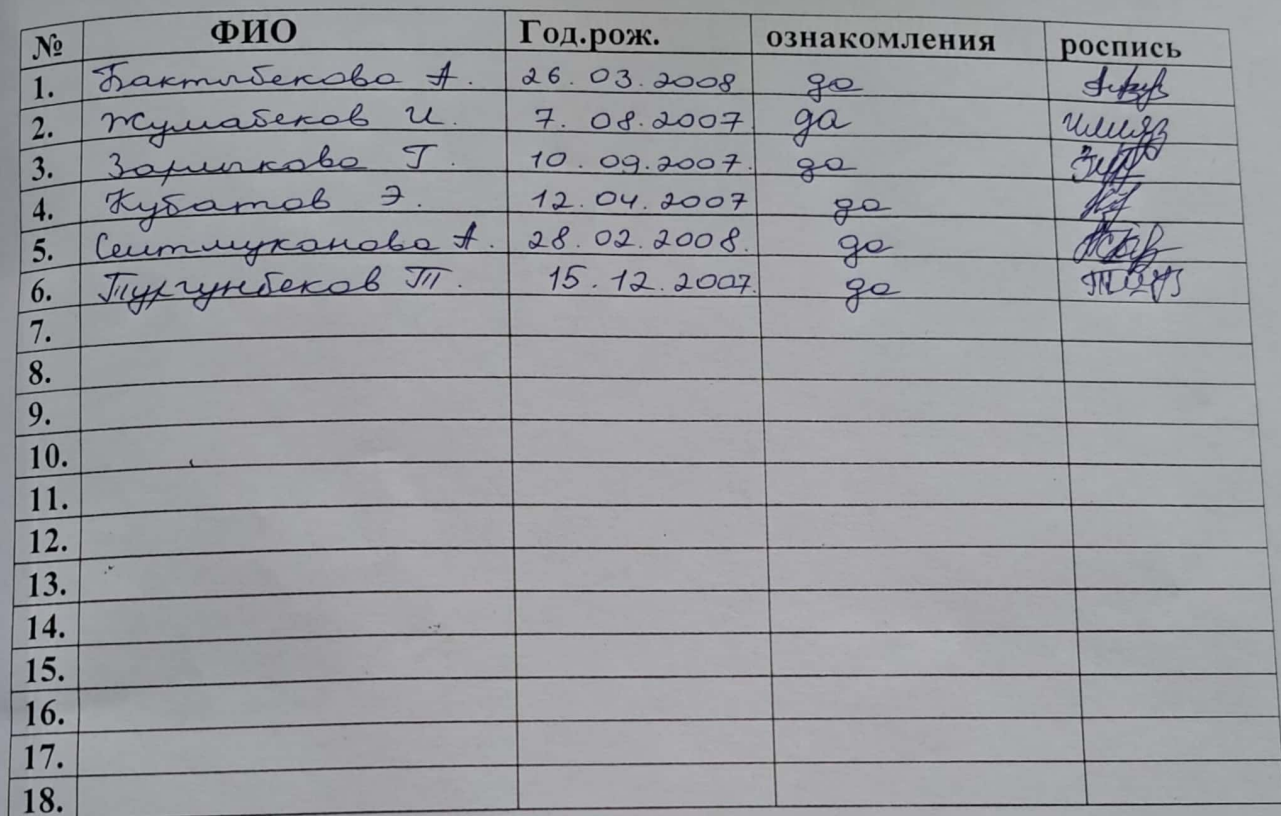 № ФИО Год.рож. ознакомления роспись
1. Бактлбекова А. 26.03.2008 да
2. Жумабеков И. 7.08.2007 да
3. Зарлыкова Г. 10.09.2007. да
4. Кубатов Э. 12.04.2007 да
5. Сеитмуканова А. 28.02.2008. да
6. Тургунбеков Т. 15.12.2007. да
7.
8.
9.
10.
11.
12.
13.
14.
15.
16.
17.
18.